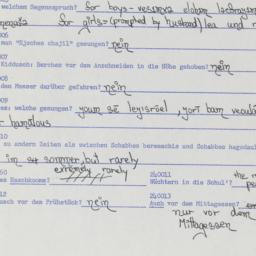 welchem Segensspruch? for boys - vesimra elohim
for girls - (prompted by husband) lea und r
006
man "Ejsches chajil" gesungen? nein
007
Kiddusch: Berches vor dem Anschneiden in die Höhe gehoben? nein
008
dem Messer darüber gefahren? nein
009
es: welche gesungen? youm sē leyisroēl, yorī bam
10
zu anderen Zeiten als zwischen Schabbes bereschis und Schabbes hagodul
im so sommer, but rarely
50
es Raschkoums? extremely rarely
240011
Nüchtern in die Schul'? the m
12
usch vor dem Frühstück? nein
240013
Auch vor dem Mittagessen?
nur vor dem
Mittagessen